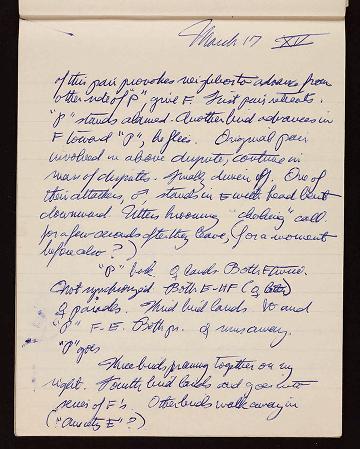 March 17 XV
of this pair provokes neighbors to advance from
other side of "P" give F. First pair retreats.
"P" stands alarmed. Another bird advances in
F toward "P", he flees. Original pair
involved in above dispute, continue in
mass of disputes. Finally driven off. One of
their attackers, ♂ stands in E with head bent
downward. Utters booming "choking" call
for a few seconds after they leave, (for a moment
before also?)
"P" back. ♀ lands. Both F twice.
Not synchronized Both E-HF (♀ later)
♀ parades. Third bird lands. It and
"P" F-E. Both fr. ♀ runs away.
"P" goes
Three birds preening together on my
right. Fourth bird lands and goes into
series of F's. Other birds walk away in
("Anxiety E"?)